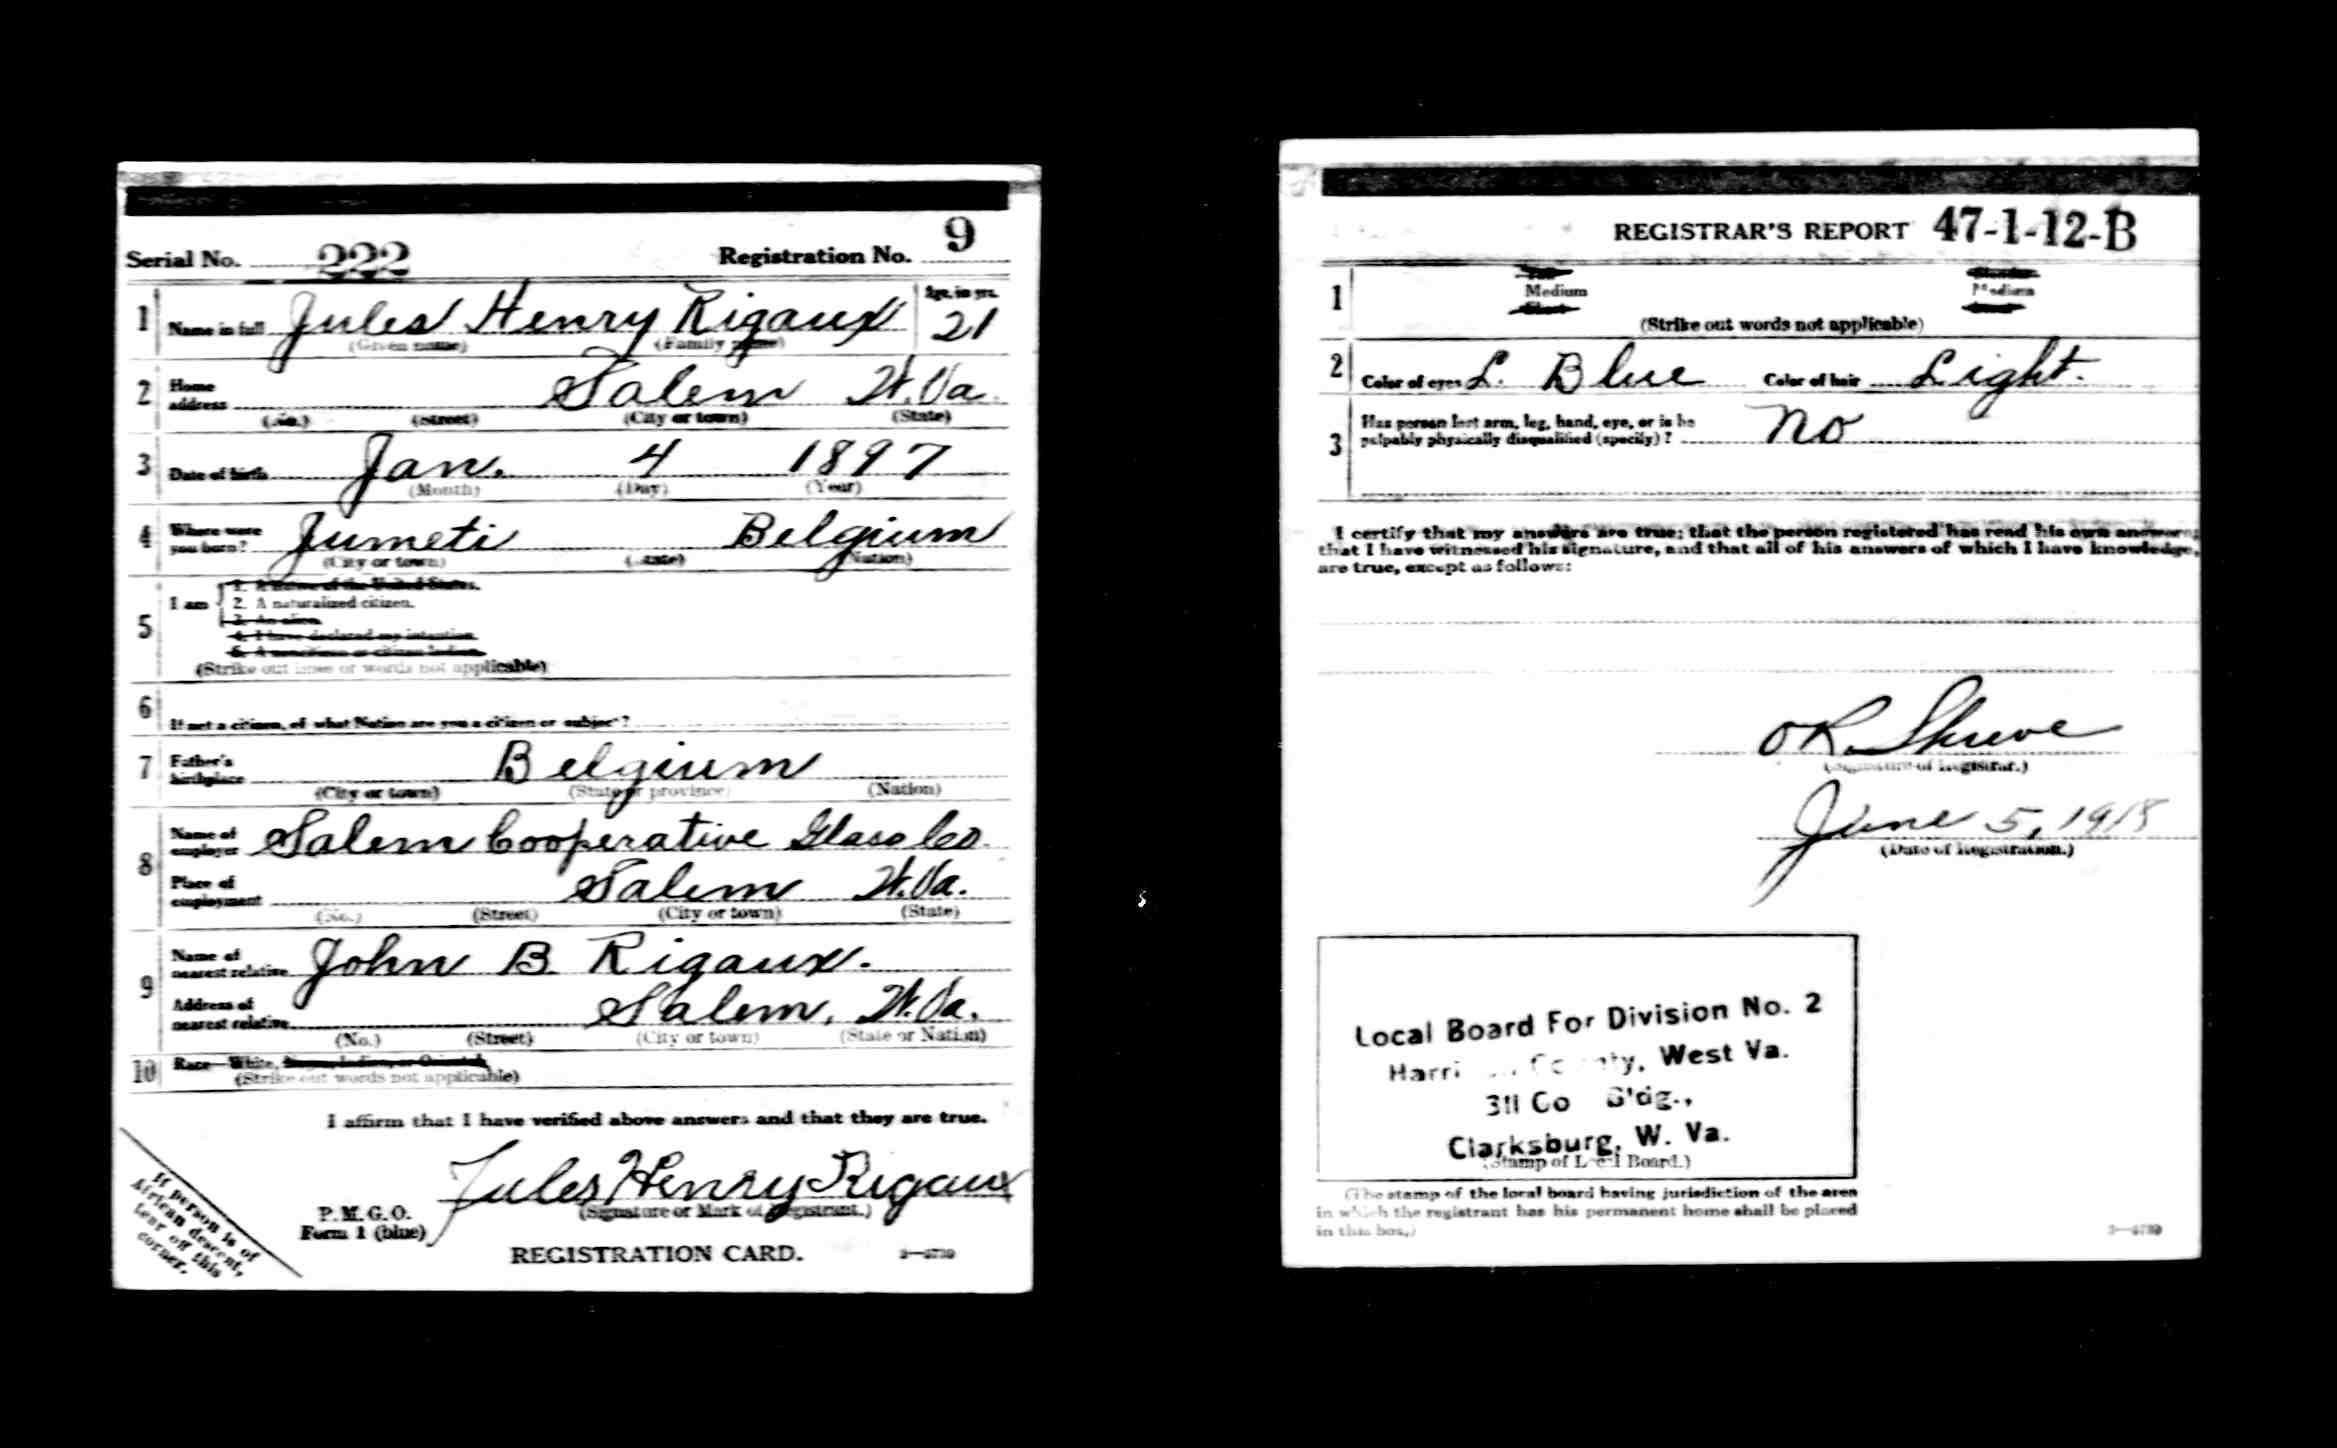 Serial No. 222 Registration No. 9
1 Name in full Jules Henry Rigaux Age, in yrs. 21
(Given name) (Family name)
2 Home address Salem W. Va.
(No.) (Street) (City or town) (State)
3 Date of birth Jan. 4 1897
(Month) (Day) (Year)
4 Where were you born? Jumeti Belgium
(City or town) (State) (Nation)
5 I am 1. A native of the United States.
2. A naturalized citizen.
3. An alien.
4. I have declared my intention.
5. A noncitizen or citizen Indian.
(Strike out lines or words not applicable)
6 If not a citizen, of what Nation are you a citizen or subject?
7 Father's birthplace Belgium
(City or town) (State or province) (Nation)
8 Name of employer Salem Cooperative Glass Co.
Place of employment Salem W. Va.
(No.) (Street) (City or town) (State)
9 Name of nearest relative John B. Rigaux.
Address of nearest relative Salem, W. Va.
(No.) (Street) (City or town) (State or Nation)
10 Race—White, Negro, Indian, or Oriental.
(Strike out words not applicable)
I affirm that I have verified above answers and that they are true.
Jules Henry Rigaux
(Signature or Mark of Registrant.)
P. M. G. O.
Form 1 (blue)
REGISTRATION CARD. 3—6739
If person is of
African descent,
tear off this
corner.
REGISTRAR'S REPORT 47-1-12-B
1 Medium Medium
(Strike out words not applicable)
2 Color of eyes L. Blue Color of hair Light.
3 Has person lost arm, leg, hand, eye, or is he
palpably physically disqualified (specify)? no
I certify that my answers are true; that the person registered has read his own answers;
that I have witnessed his signature, and that all of his answers of which I have knowledge,
are true, except as follows:
O R. Shreve
(Signature of Registrar.)
June 5, 1918
(Date of Registration.)
Local Board For Division No. 2
Harrison County, West Va.
311 Co Bldg.,
Clarksburg, W. Va.
(Stamp of Local Board.)
(The stamp of the local board having jurisdiction of the area
in which the registrant has his permanent home shall be placed
in this box.)
3—6739